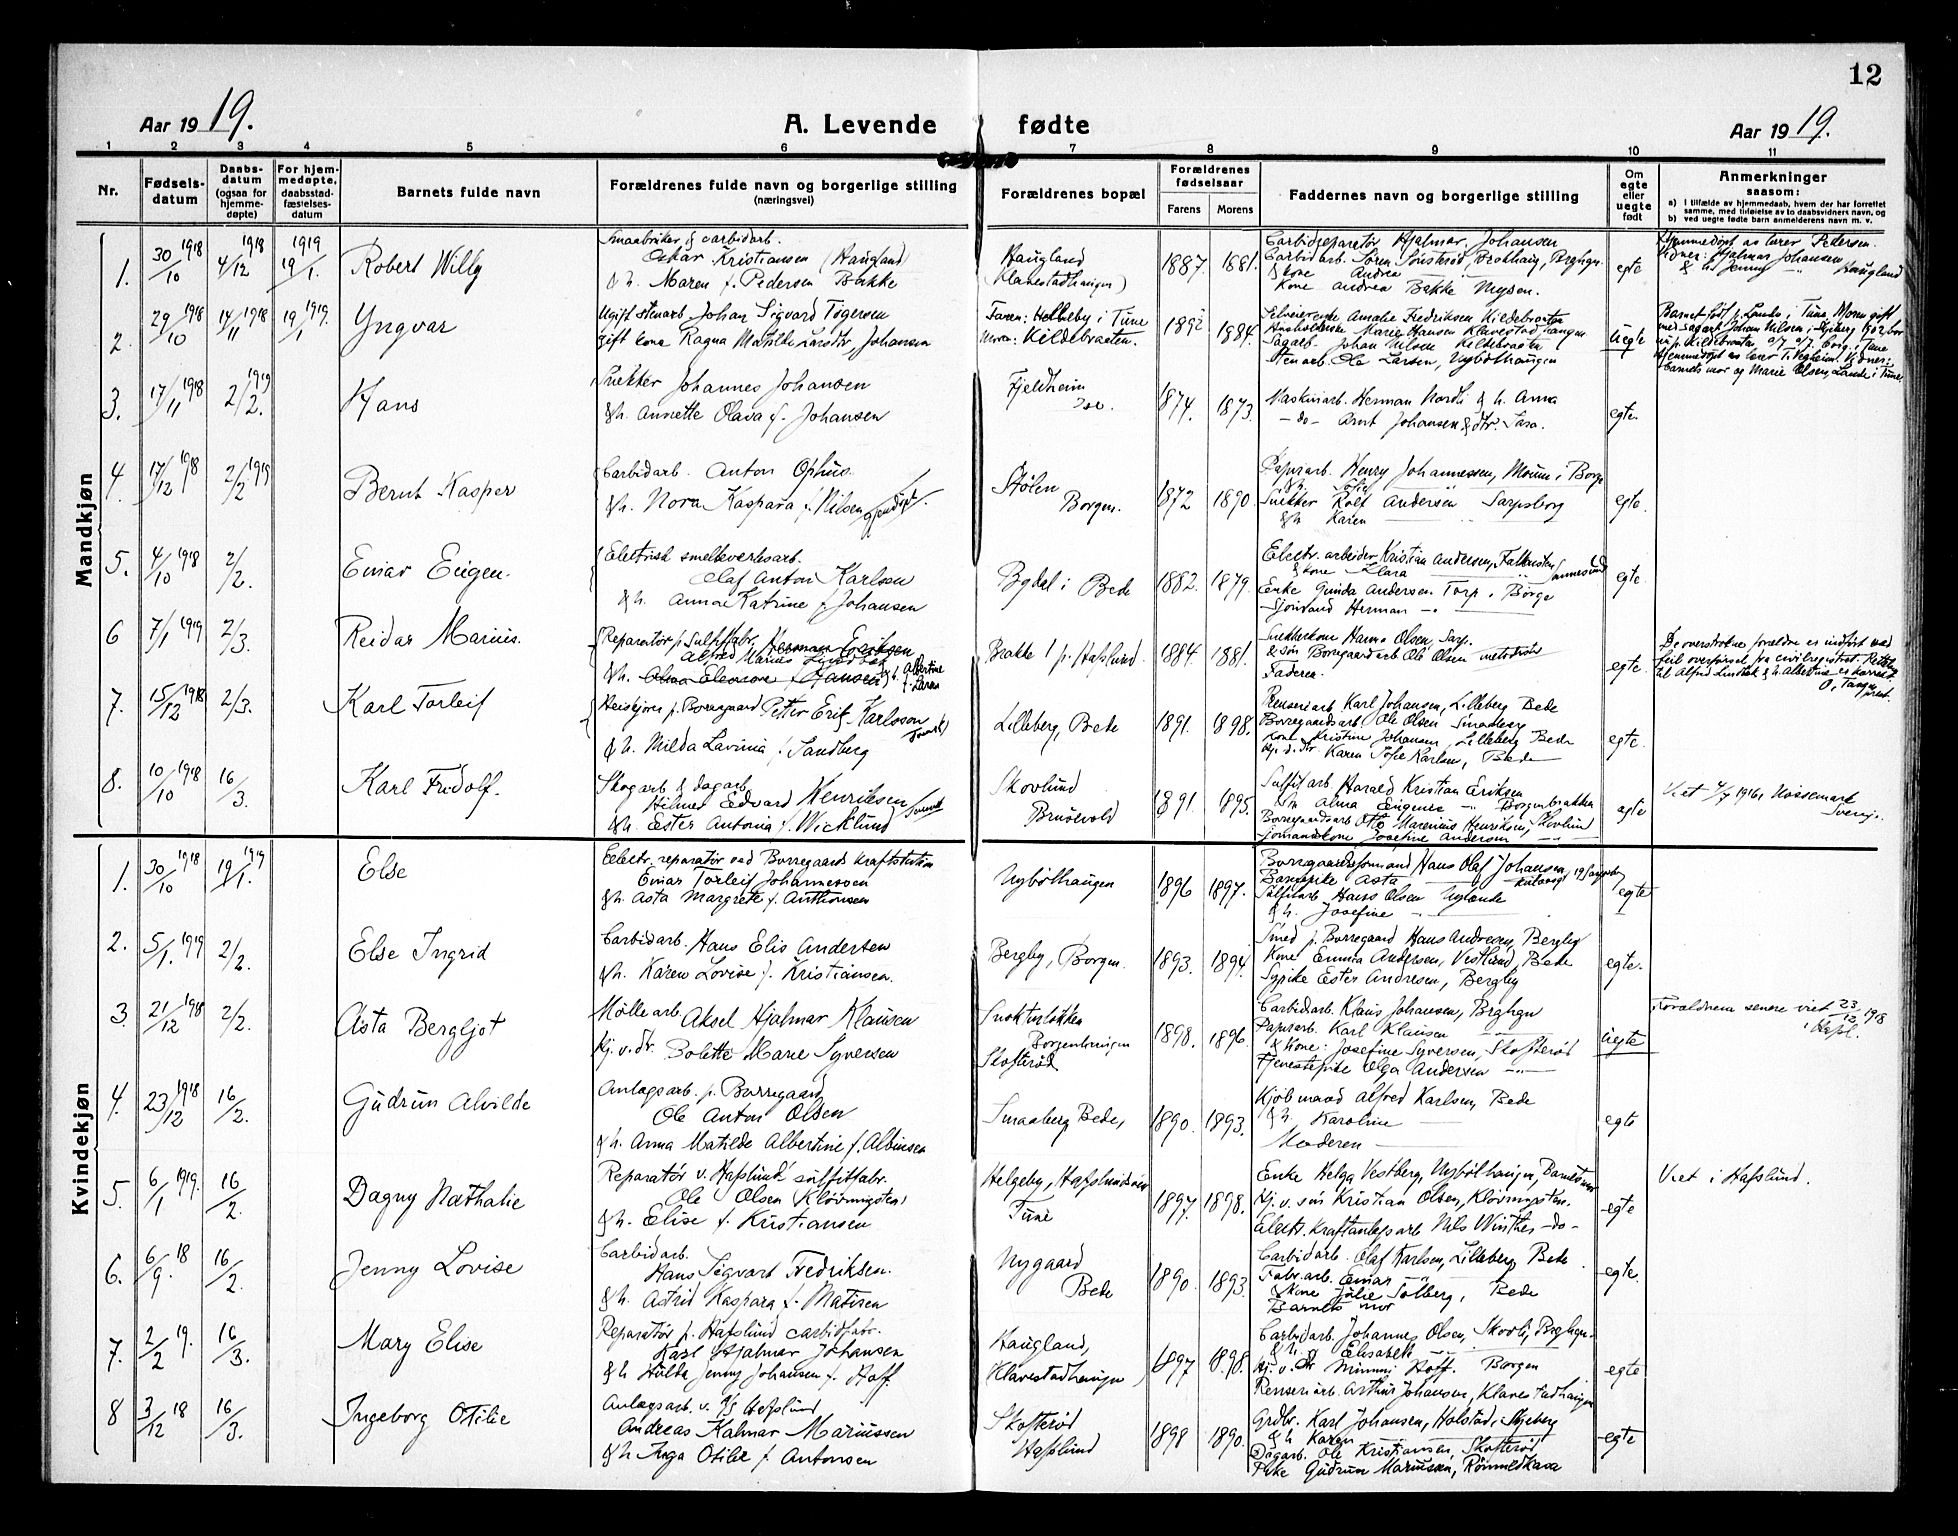 12
Aar 1919.
A. Levende fødte
Aar 1919.
1 2 3 4 5 6 7 8 9 10 11
Nr.
Fødselsdatum
Daabsdatum (ogsaa for hjemmedøpte)
For hjemmedøpte, daabsstadfæstelsesdatum
Barnets fulde navn
Forældrenes fulde navn og borgerlige stilling (næringsvei)
Forældrenes bopæl
Forældrenes fødselsaar
Farens Morens
Faddernes navn og borgerlige stilling
Om egte eller uegte født
Anmerkninger saasom:
a) I tilfælde av hjemmedaab, hvem der har forrettet samme, med tilføielse av to daabsvidners navn, og
b) ved uegte fødte barn anmelderens navn m. v.
Mandkjøn
1. 30/10 1918 4/12 1918 19/1 1919 Robert Willy
Smaabruker & carbidarb.
Oskar Kristiansen (Haugland)
& h. Maren f. Pedersen Bakke
Haugland
(Klavestadhaugen)
1887. 1881.
Carbidreparatør Hjalmar Johansen
& kone Andrea
Kone Andrea Bakke Mysen.
egte
Hjemmedøpt av lærer Pedersen.
Vidner: Hjalmar Johansen
& h. Jenny Haugland
2. 29/10 1918 14/11 1918 19/1 1919. Yngvar
Ugift stenarb. Johan Sigvard Tøgersen
gift kone Ragna Matilde Larsdtr, Johansen
Faren: Helleby i Tune
Moren: Kildebraaten.
1892 1884.
Selveierenke Amalie Fredriksen Kildebraaten
Husholderske Marie Hansen Klavestadhaugen
Sagarb. Johan Nilsen Kildebraaten
Stenarb. Ole Larsen, Nybølhaugen
uegte
Barnet født p. Lande i Tune, Moren gift
med sagarb. Johan Nilsen i Skjeberg 1902 bor
barnets mor og Marie Olsen, Lande i Tune.
3. 17/11 1918 2/2. 1919 Hans
Snekker Johannes Johansen
& h. Annette Olava f. Johansen
Fjeldheim
Ise.
1874. 1873.
Maskinarb. Herman Nordli & h. Anna
– do – Arnt Johansen & dtr. Sara.
egte.
4. 17/12 1918 2/2 1919 Bernt Kasper
Carbidarb. Anton Ophus.
& h. Nora Kaspara f. Nilsen
Stølen
Borgen.
1872 1890
Papirarb. Henry Johannessen, Moum i Borge
& h. Sofie
Snekker Rolf Andersen Sarpsborg
& h. Karen
egte.
5. 4/10 1918 2/2. Einar Eugen.
Electrisk smelteverksarb.
Olaf Anton Karlsen
& h. Anna Katrine f. Johansen
Bydal i Bede
1882. 1879.
Electr. arbeider Kristian Andersen,
& kone Klara
Enke Gunda Andersen Torp i Borge
Herman
egte
6 7/1 1919 2/3. Reidar Marius.
Reparatør p. Sulfitfabr. Herman Eriksen
Alfred Marius Lindbæk
& h. Alma Eleonore f. Hansen & h. Albertine f. Larsen
Brakke 1 p. Hafslund.
1884. 1881.
Snekkerkone Hanna Olsen Sarp.
& søn Borregaardarb. Ole Olsen metodister
Faderen
egte
De overstrokne forældre er indført ved
feil overførsel fra civilregistret. Rettelsen
til Alfred Lindbæk & h. Albertine er korrekt
7. 15/12 1918 2/3. Karl Torleif
Heiskjører p. Borregaard Petter Erik Karlsson
& h. Milda Lavinia f. Sandberg
Lilleberg, Bede
1891. 1898.
Renseriarb. Karl Johansen, Lilleberg Bede
Borregaardsarb. Ole Olsen Smaaberg
Kone Kristine Johansen, Lilleberg Bede
Karen Sofie Karlsen, Bede
egte.
8. 10/10 1918 16/3. Karl Fridolf.
Skogarb & dagarb.
Hilmer Edvard Henriksen
& h. Ester Antonia f. Wicklund
Skovlund
Brusevold
1891. 1895.
Sulfitarb Harald Kristian Eriksen
Alma Eugenie Borgenbrakken
Borregaardsarb Otto Marenius Henriksen, Skovlund
Formandskone Josefine Andersen
egte
Viet 4/7 1916, Nössemark
Sverig.
Kvindekjøn
1. 30/10 1918 19/1. 1919 Else
Electr. reparatør ved Borregaards Kraftstation
Einar Torleif Johannessen
& h. Asta Margrete f. Anthonsen
Nybølhaugen
1896 1897.
Borregaardsformand Hans Olaf Johansen,
Barnepike Asta
Sulfitarb Hans Olsen Nylænde
& h. Josefine
egte
2. 5/1. 1919 2/2. Else Ingrid
Carbidarb. Hans Elis Andersen
& h. Karen Lovise f. Kristiansen.
Bergby, Borgen.
1893. 1894.
Smed p. Borregaard Hans Andresen, Bergby
Kone Emma Andersen, Vestlund, Bede
Sypike Ester Andresen, Bergby
egte.
3. 21/12 1918 2/2. Asta Bergljot
Møllearb. Aksel Hjalmar Klausen
Hj. v. dr. Bolette Marie Syversen
Borgenhaugen
Skofterød
1898. 1896.
Carbidarb. Klaus Johansen, Brghgn
Papirarb. Karl Klausen
& kone: Josefine Syversen, Skofterød
Tjenestepike Olga Andersen
uegte
Forældrene senere viet 23/12 1918
i Hafsl.
4. 23/12 1918 16/2. Gudrun Alvilde
Anlægsarb. p. Borregaard
Ole Anton Olsen
& h. Anna Matilde Albertine f. Albinsen
Smaaberg Bede,
1890. 1893.
Kjøbmand Alfred Karlsen, Bede
& h. Karoline
Moderen
egte
5. 6/1 1919. 16/2. Dagny Nathalie
Reparatør v. Hafslund sulfitfabr.
Ole Olsen Kløvningsten,
& h. Elise f. Kristiansen
Helgeby, Hafslundsøen
Tune
1897. 1898.
Enke Helga Vestberg, Nybølhaugen,
Hj. v. søn Kristian Olsen, Kløvningsten.
Electr. Kraftanlægsarb Nils Winther – do –
egte
Viet i Hafslund.
6. 6/9. 18 16/2. Jenny Lovise
Carbidarb.
Hans Sigvart Fredriksen.
& h. Astrid Kaspara f. Matisen
Nygaard
Bede
1890. 1893.
Carbidarb. Olaf Karlsen, Lilleberg Bede
Fabr.arb. Einar
& kone Julie Solberg, Bede
Barnets mor
egte.
7. 2/2 19. 16/3. Mary Elise
Reparatør p. Hafslund carbidfabr.
Karl Hjalmar Johansen
& h Hulda Jenny Johansen f. Hoff.
Haugland,
Klavestadhaugen
1897 1898.
Carbidarb. Johannes Olsen, Skovli, Brghgn.
& h. Elisabeth
Hj. v. dr Minny Hoff. Borgen
Renseriarb. Arthur Johansen, Klavestadhaugen
egte
8 3/12 18 16/3. Ingeborg Otilie
Anlægsarb. v. A/S Hafslund
Andreas Kalmar Mariussen
& h Inga Otilie f. Antonsen
Skofterød
Hafslund
1898 1890.
Grdbr. Karl Johansen, Holstad i Skjeberg
& h Karen
Dagarb. Ole Kristiansen, Skofterød
Pike Gudrun Mariussen,
egte